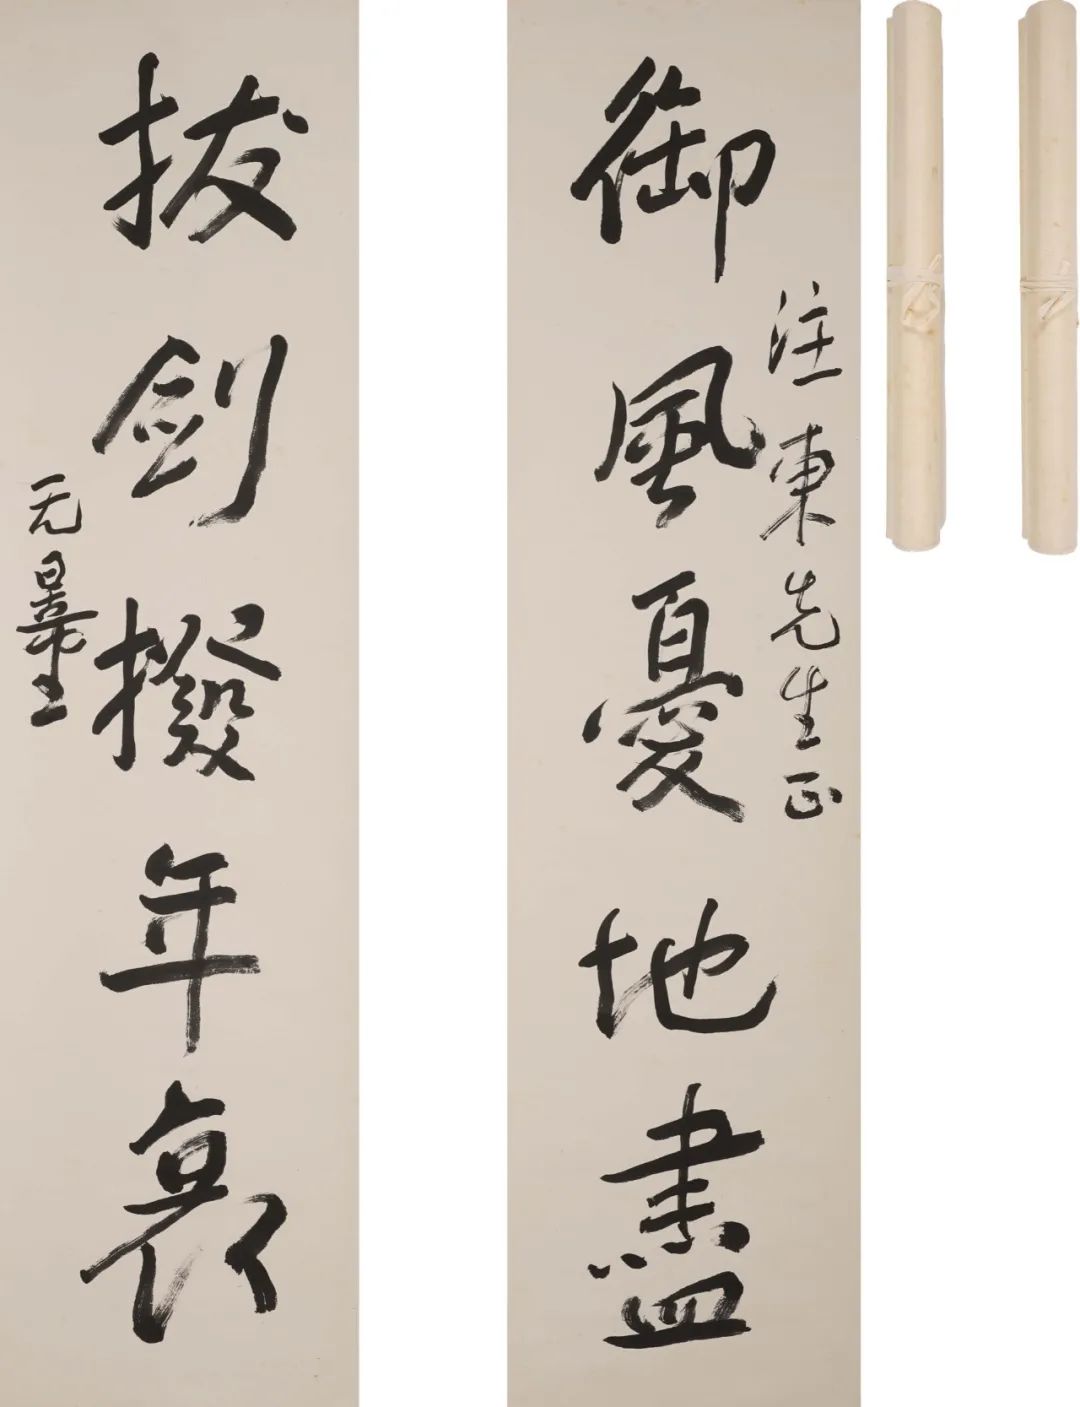 御風憂地盡
注東先生正
拔劍撥年哀
无量